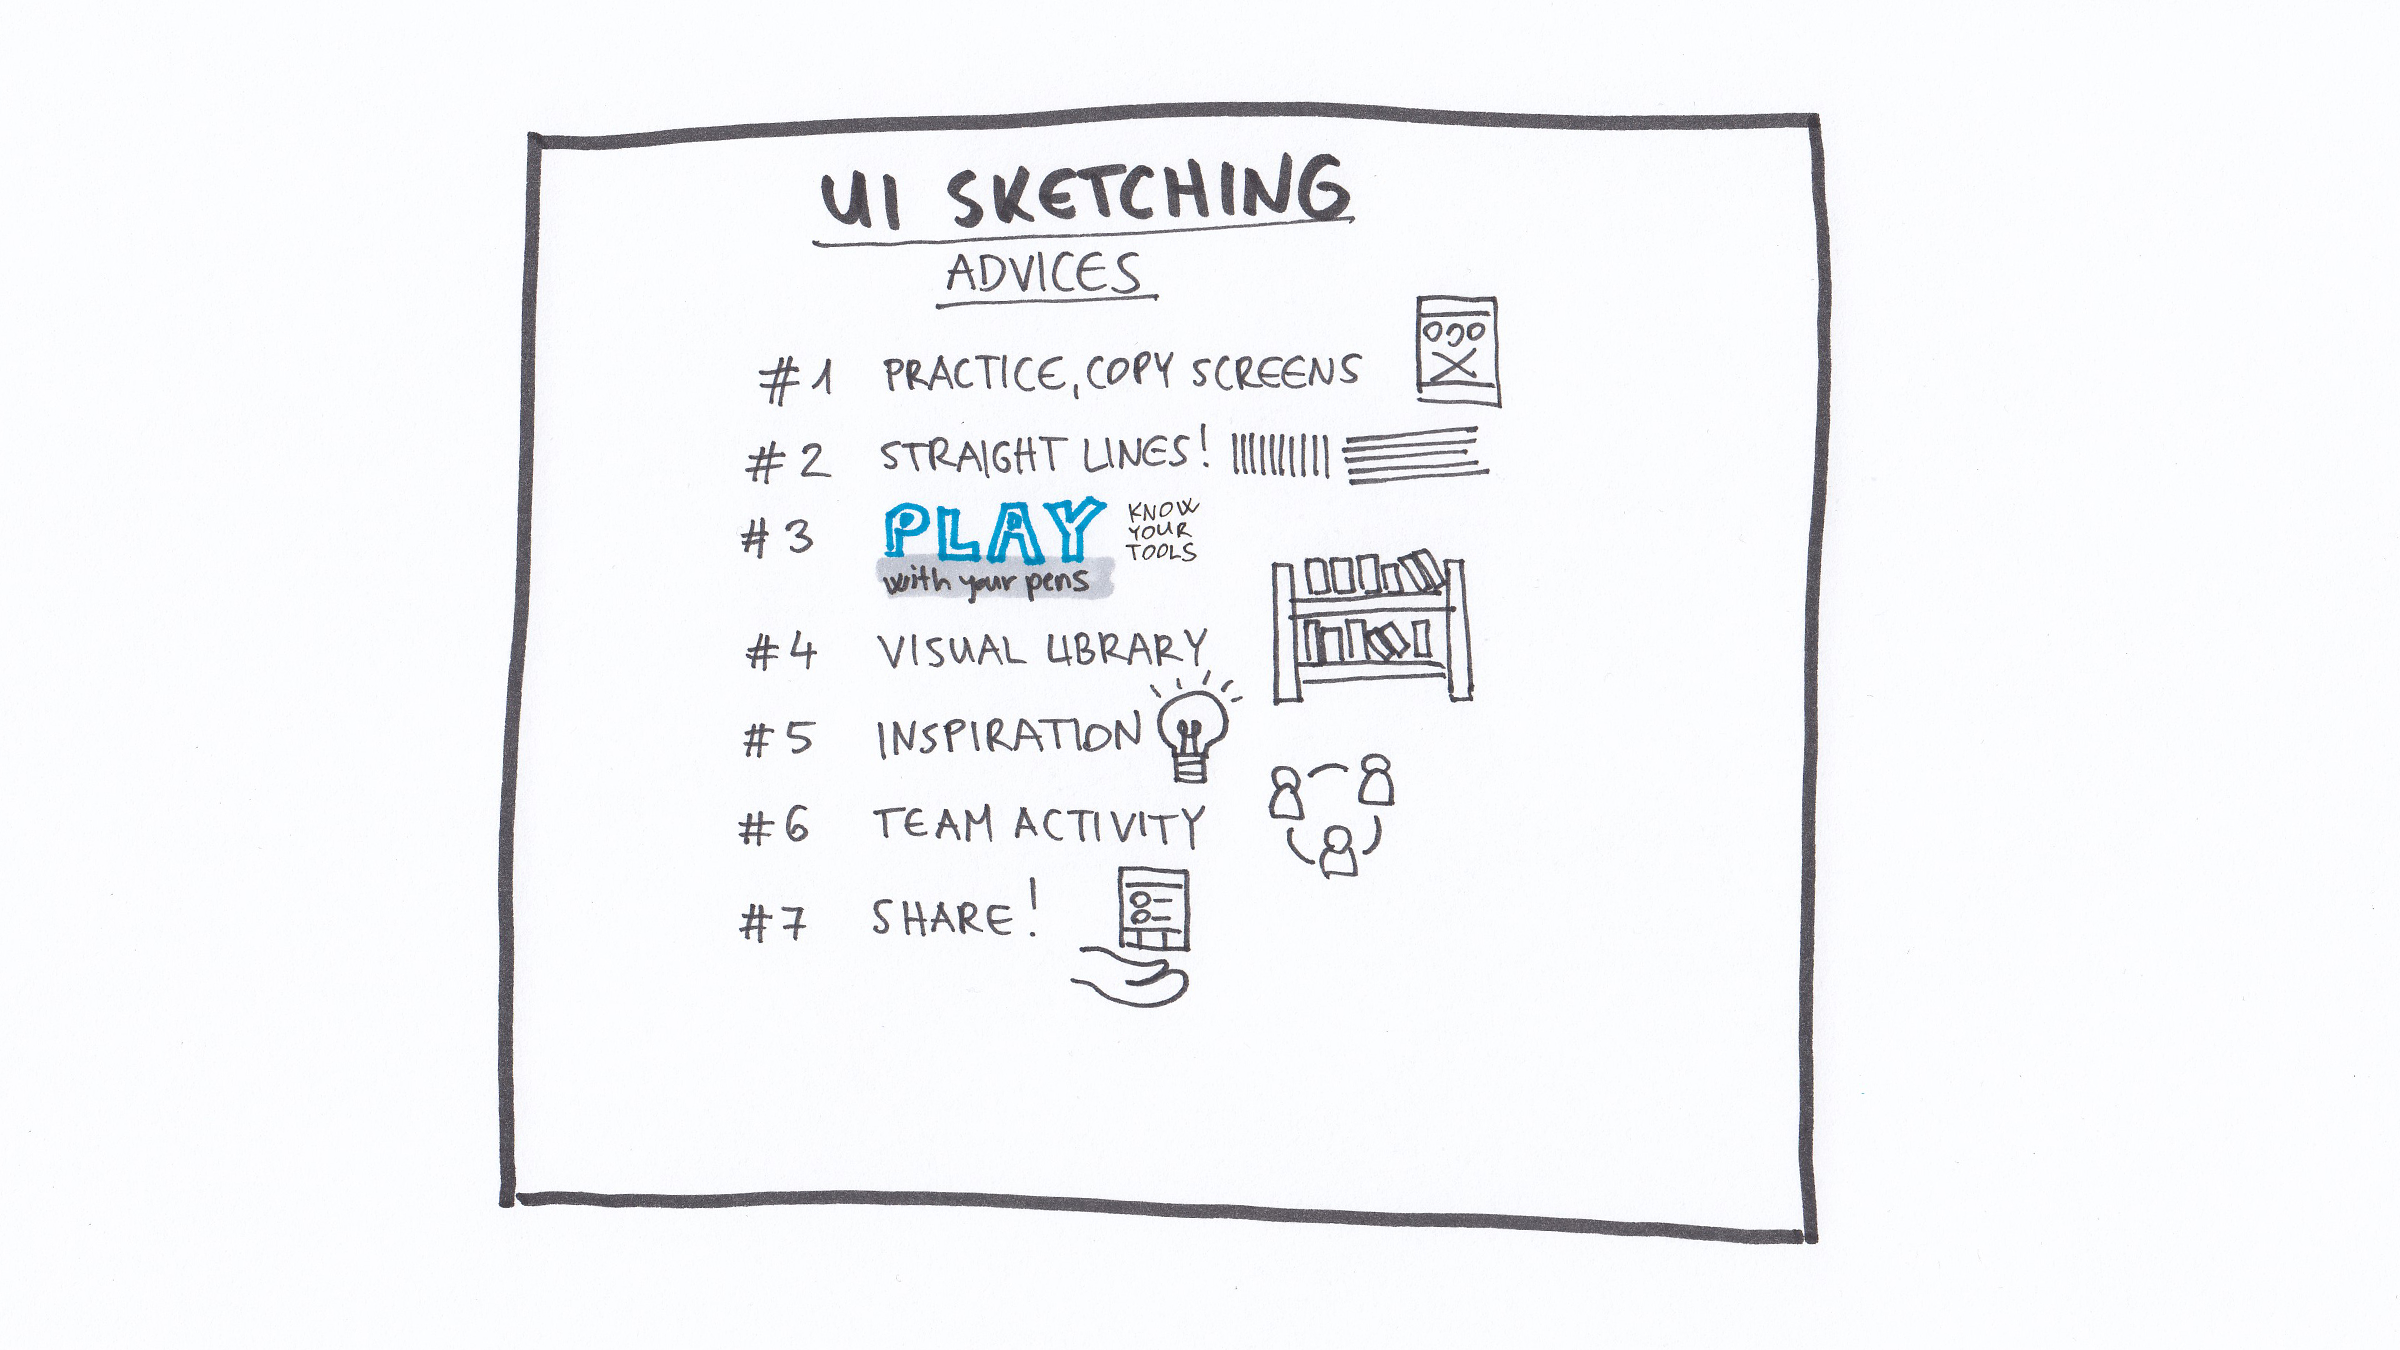 UI SKETCHING
ADVICES
#1 PRACTICE, COPY SCREENS
#2 STRAIGHT LINES!
#3 PLAY
with your pens
KNOW
YOUR
TOOLS
#4 VISUAL LIBRARY
#5 INSPIRATION
#6 TEAM ACTIVITY
#7 SHARE!